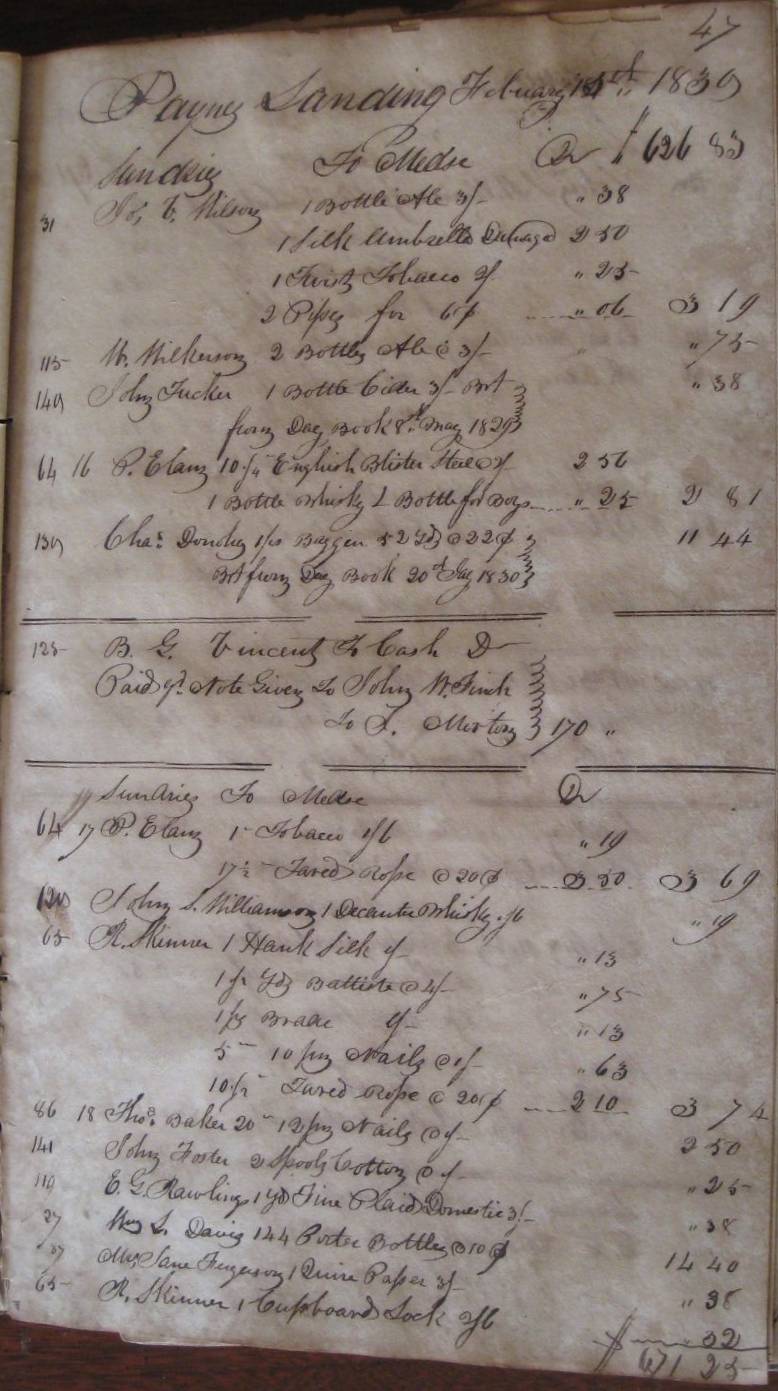 47
Paynes Landing February 15th 1830
$626 83
Sundries To Medse Dr
31 Jos, V. Wilson 1 Bottle Ale 3/- " 38
1 Silk Umbrella Damaged 2 50
1 Twist Tobacco 2/ " 25
2 Pipes for 6¢ " 06 3 19
115 W. Wilkerson 2 Bottles Ale @ 3/- " 75
140 John Tucker 1 Bottle Cider 3/- Brt " 38
from Day Book 8th May 1829
64 16 P. Elam English Blister Steel @ 2/ 2 56
1 Bottle Whisky & Bottle for Boys " 25 2 81
139 Chas. Donohy 1 ps Baggen 52 Yds @ 22¢ 11 44
Brt from Day Book 20th 1830
125 B. G. Vincent To Cash Dr
Paid Note Given To John W. Finch
To J. Morton 170 "
Sundries To Medse Dr
64 17 P. Elam 1 Tobacco 1/6 " 19
17½ Tared Rope @ 20¢ 3 50 3 69
120 John S. Williamson 1 Decanter Whisky 1/6 " 19
65 R. Skinner 1 Hank Silk 1/- " 13
Yds Battiste @ 4/- " 75
Brade 1/- " 13
5 10 pny Nails @ 1/- " 63
10½ Tared Rope @ 20¢ 2 10 3 74
86 18 Thos. Baker 20 12 pny Nails @ 1/- 2 50
141 John Foster 2 Spools Cotton @ 1/- " 25
E. G. Rawlings 1 yd Fine Plaid Domestic 3/- " 38
27 Wm S. Davis 144 Porter Bottles @ 10¢ 14 40
37 Mrs Jane Ferguson 1 Quire Paper 3/- " 38
65 R. Skinner 1 Cupboard Lock 2/6 " 32
$671 25